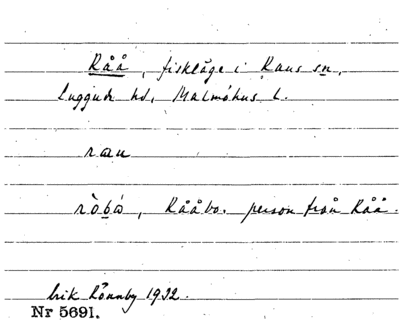 Råå, fiskläge i Raus sn,
Luggude hd, Malmöhus L.
rau
ròbá, Rååbo. person från Råå.
Erik Rönnby 1932.
Nr 5691.